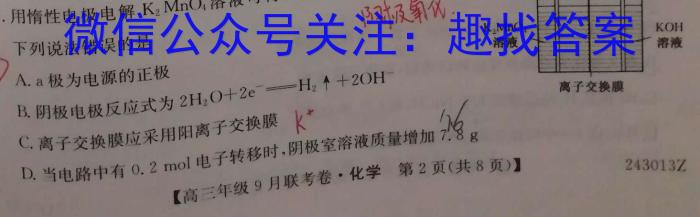 .用惰性电极电解K₂MnO₄溶液
微信公众号关注：趣找答案
下列说法错误的是
溶液
KOH
溶液
离子交换膜
A. a极为电源的正极
B. 阴极电极反应式为2H₂O+2e⁻══H₂↑+2OH⁻
C. 离子交换膜应采用阳离子交换膜 K⁺
D. 当电路中有0.2 mol电子转移时,阴极室溶液质量增加7.8 g
7.6
【高三年级9月联考卷·化学 第2页(共8页)】
243013Z